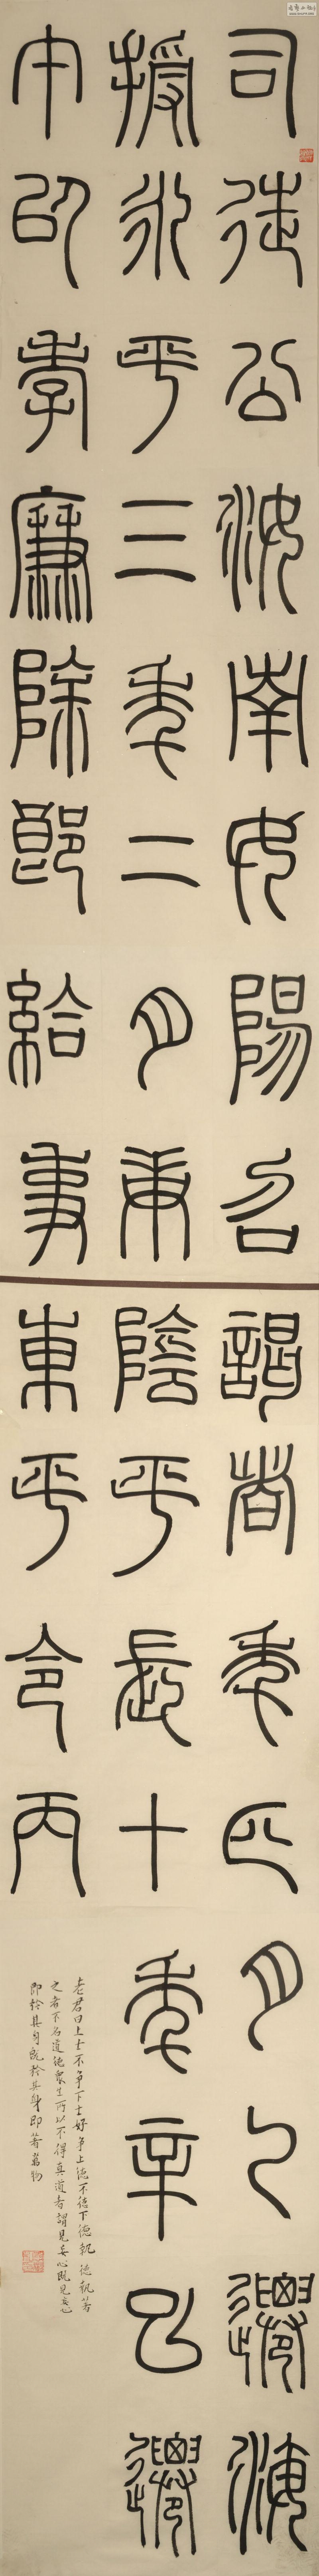 司徒公汝南女陽召謁者年正月乙遷海
授永平三年二月庚陰平長十年辛巳遷
午以孝廉除郎給事東平令丙
老君曰上士不爭下士好爭上德不德下德執德執著
之者不名道德眾生所以不得真道者謂見妄心既見妄心
即於其身既於其身即著萬物